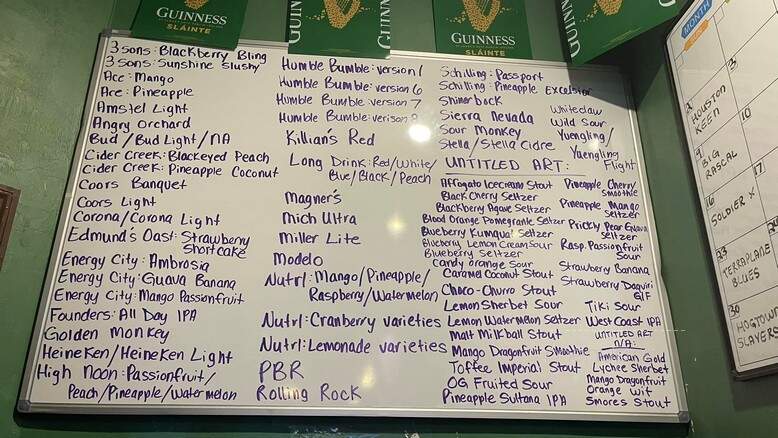 GUINNESS
SLÁINTE
GUINNESS
GUINNESS
SLÁINTE
GUINN
3 sons: Blackberry Bling
3 sons: Sunshine Slushy
Ace: Mango
Ace: Pineapple
Amstel Light
Angry Orchard
Bud / Bud Light / NA
Cider Creek: Blackeyed Peach
Cider Creek: Pineapple Coconut
Coors Banquet
Coors Light
Corona/Corona Light
Edmund's Oast: Strawberry
Shortcake
Energy City: Ambrosia
Energy City: Guava Banana
Energy City: Mango Passionfruit
Founders: All Day IPA
Golden Monkey
Heineken/Heineken Light
High Noon: Passionfruit/
Peach/Pineapple/Watermelon
Humble Bumble: version 1
Humble Bumble: version 6
Humble Bumble: version 7
Humble Bumble: verison
Killian's Red
Long Drink: Red/White/
Blue/Black/Peach
Magner's
Mich Ultra
Miller Lite
Modelo
Nutrl: Mango/Pineapple/
Raspberry/Watermelon
Nutrl: Cranberry varieties
Nutrl: Lemonade varieties
PBR
Rolling Rock
Schilling: Passport
Schilling: Pineapple Excelsior
Shiner bock
Sierra Nevada
Sour Monkey
Stella/Stella Cidre
Whiteclaw
Wild Sour
Yuengling/
Yuengling
Flight
UNTITLED ART:
Affogato Icecream Stout
Black Cherry Seltzer
Blackberry Agave Seltzer
Blood Orange Pomegranite Seltzer
Blueberry Kumquat Seltzer
Blueberry Lemon Cream Sour
Blueberry Seltzer
Candy orange Sour
Caramel Coconut Stout
Choco-Churro Stout
Lemon Sherbet Sour
Lemon Watermelon Seltzer
Malt Milkball Stout
Mango Dragonfruit Smoothie
Toffee Imperial Stout
OG Fruited Sour
Pineapple Sultana IPA
Pineapple Cherry
Smoothie
Pineapple Mango
Seltzer
Prickly Pear Guava
Seltzer
Rasp. Passionfruit
Sour
Strawberry Banana
Strawberry Daquiri
G/F
Tiki Sour
West Coast IPA
UNTITLED ART
N/A:
American Gold
Lychee Sherbet
Mango Dragonfruit
Orange Wit
Smores Stout
MONTH
2
HOUSTON
KEEN
3
9
BIG
RASCAL
10
16
SOLDIER X
17
23
TERRAPLANE
BLUES
30
HOGTOWN
SLAYERS